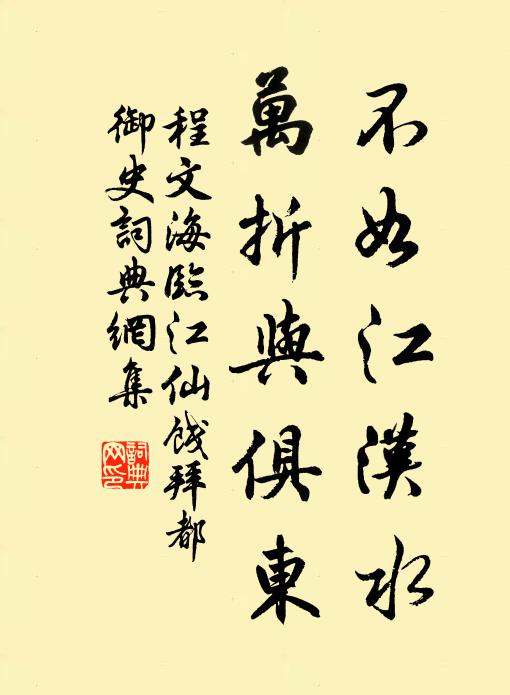 不如江漢水
萬折與俱東
程文海臨江仙餞拜都
御史詞典網集
詞典網印